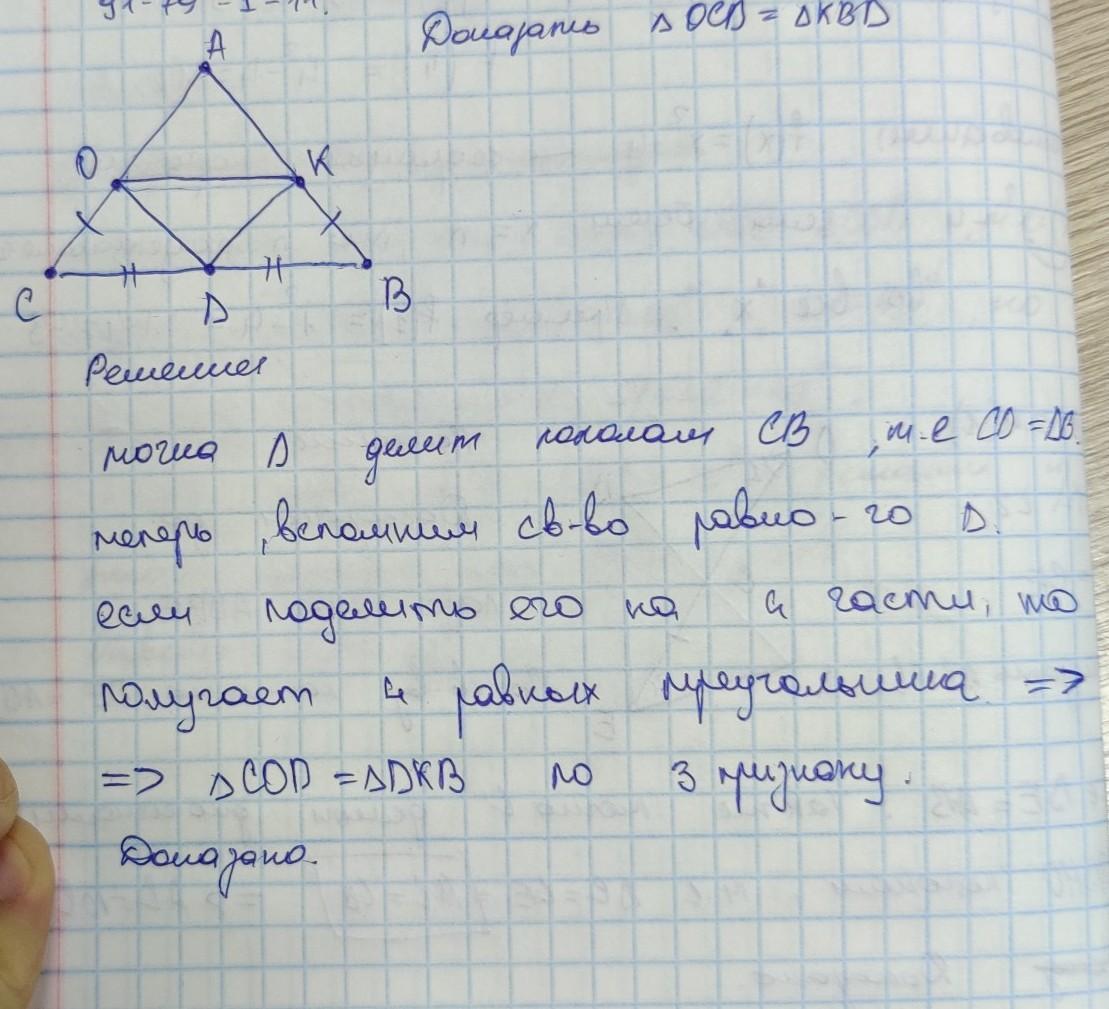 Доказать △ OCD = △KBD
A
O
K
C
D
B
Решение
точка D делит пополам CB , т.е CD = DB.
теперь , вспомним св-во равно-го △.
если поделить его на 4 части, то
получает 4 равных треугольника =>
=> △COD = △DKB по 3 признаку.
Доказано.